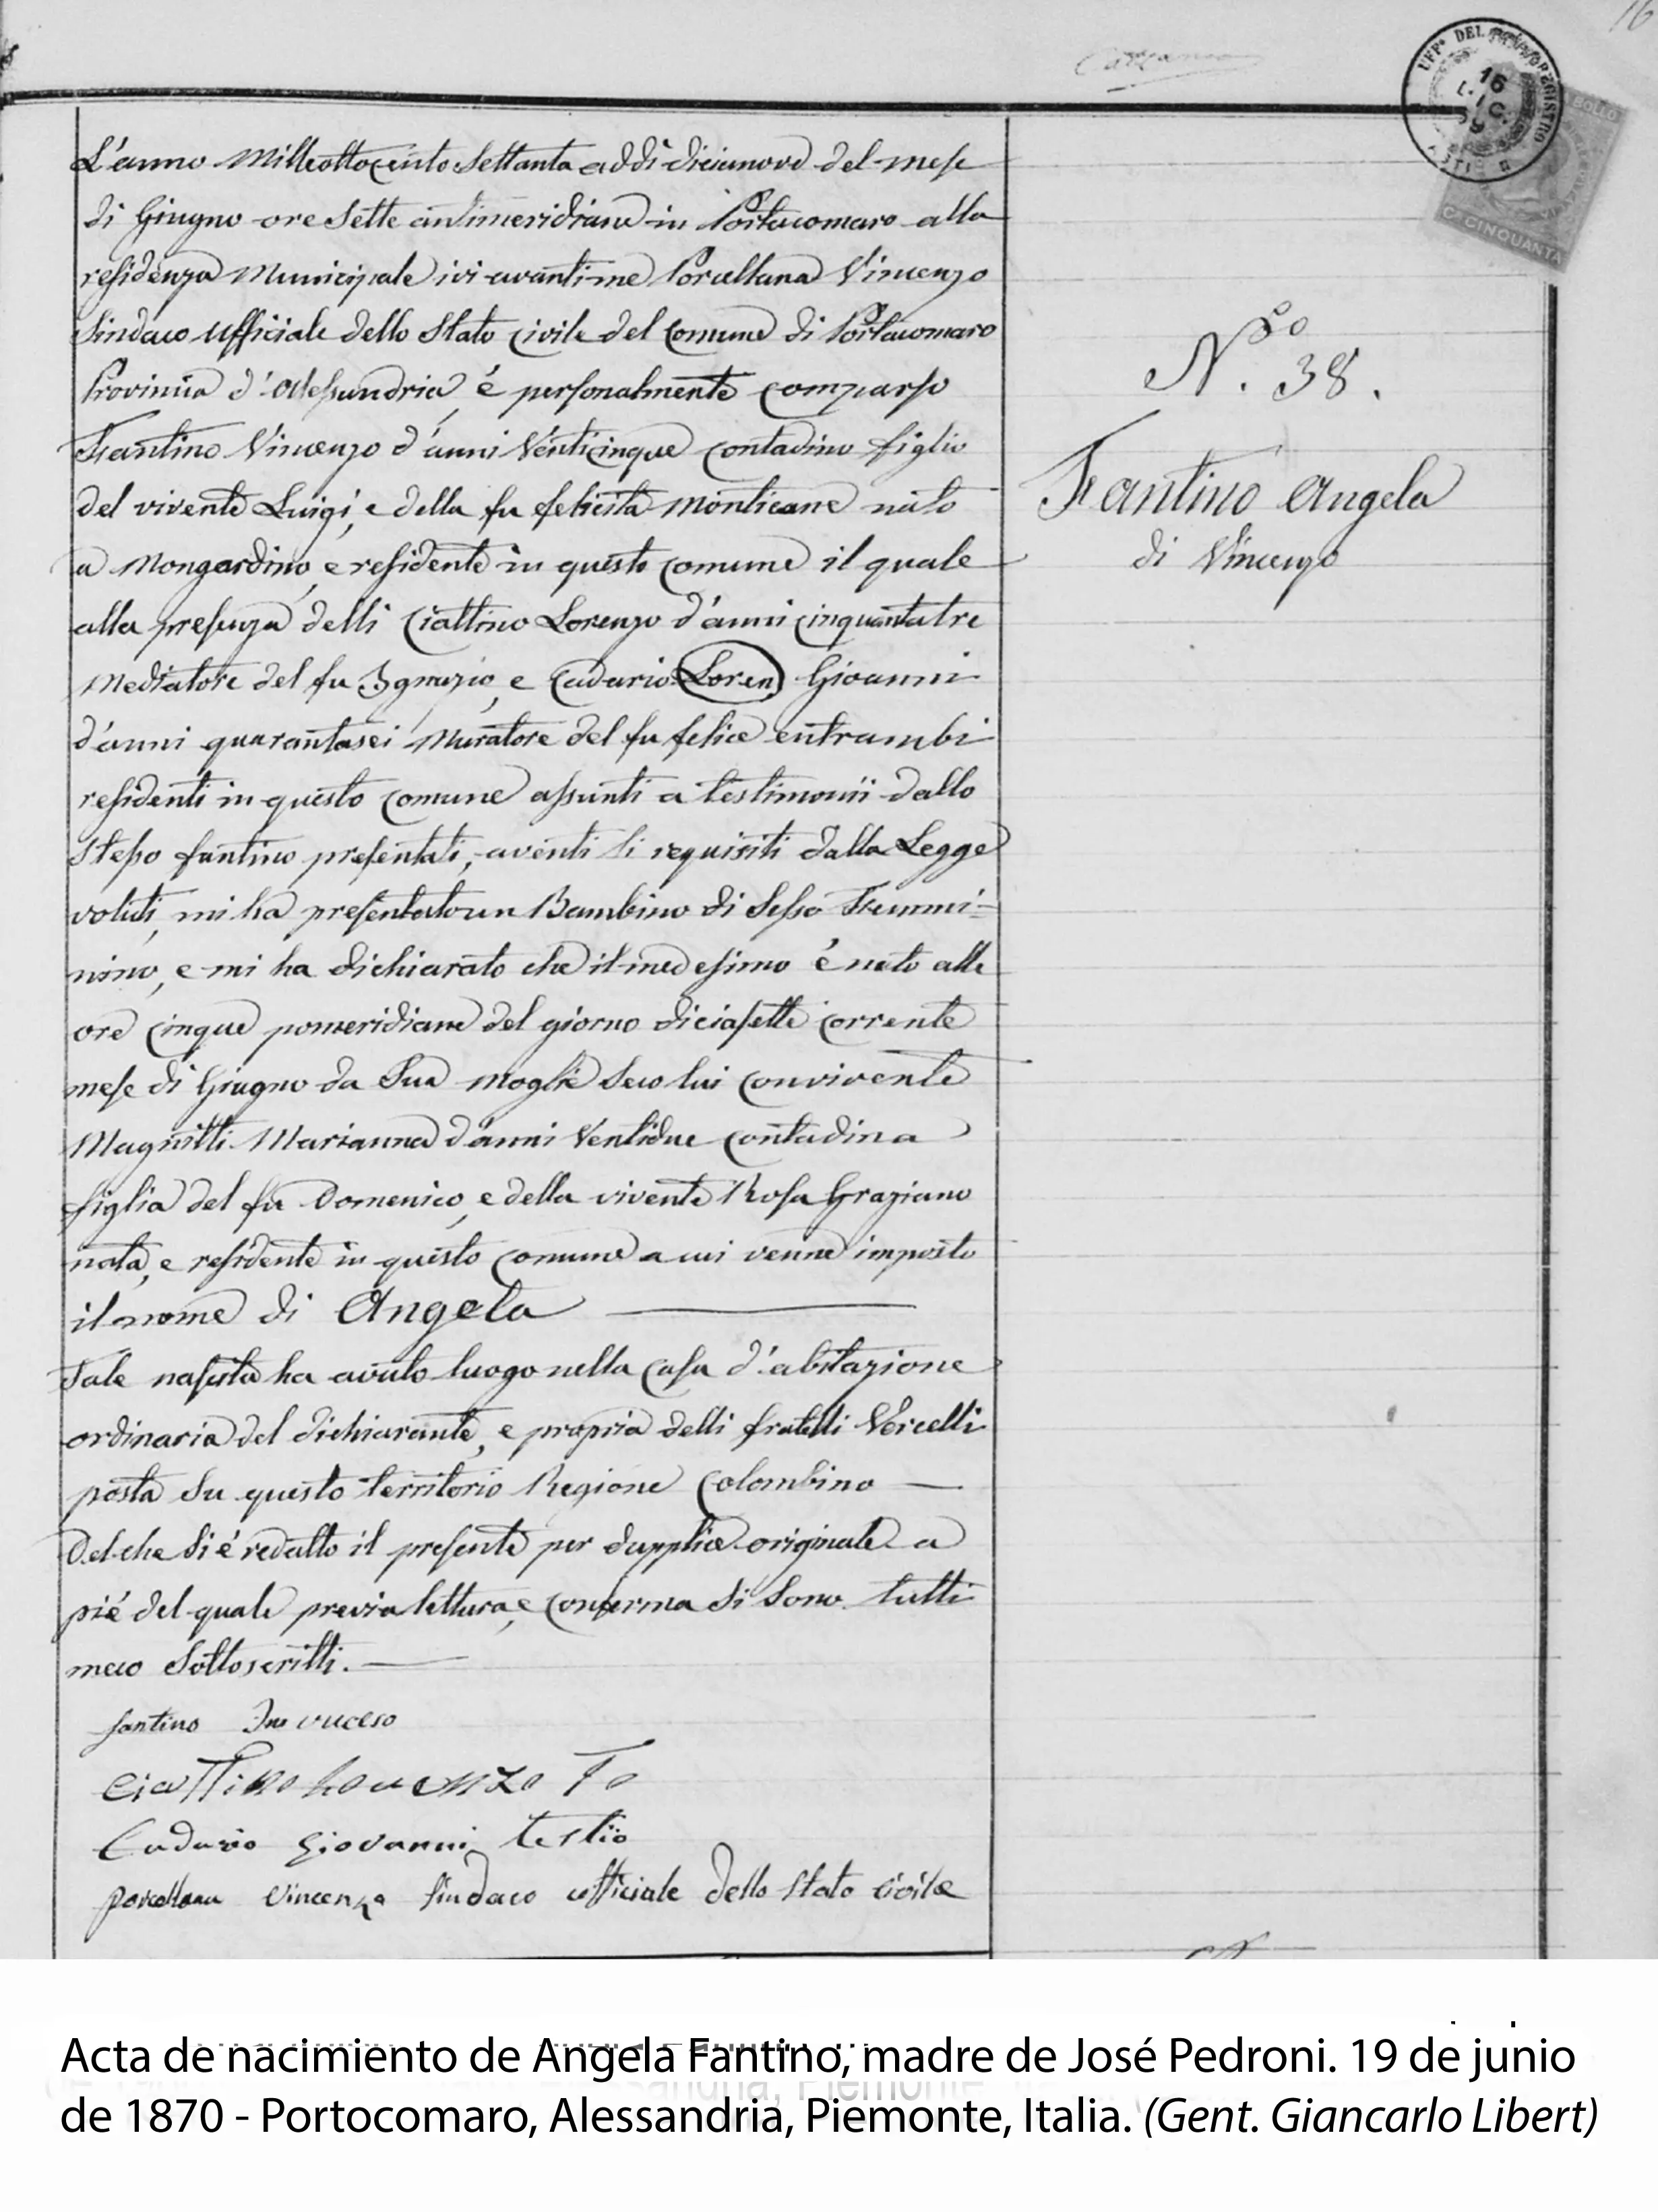 L'anno Milleottocento Settanta addì diciannove del mese
di Giugno ore Sette antimeridiane in Portacomaro alla
residenza Municipale ivi avanti me Porcellana Vincenzo
Sindaco Ufficiale dello Stato Civile del Comune di Portacomaro
Provincia d'Alessandria è personalmente comparso
Fantino Vincenzo d'anni Venticinque contadino figlio
del vivente Luigi, e della fu felicita Monticane nato
a Mongardino, e residente in questo comune il quale
alla presenza delli Ciattino Lorenzo d'anni cinquantatre
Mediatore del fu Ignazio, e Cadario Loren Giovanni
d'anni quarantasei Muratore del fu felice entrambi
residenti in questo comune assunti a testimonii dallo
Stesso fantino presentati, aventi li requisiti dalla Legge
voluti, mi ha presentato un Bambino di Sesso Femmi-
nino, e mi ha dichiarato che il medesimo è nato alle
ore cinque pomeridiane del giorno diciasette corrente
mese di Giugno da Sua Moglie Seco lui convivente
Marianna d'anni Ventidue contadina
figlia del fu Domenico, e della vivente Rosa Graziano
nata, e residente in questo comune a cui venne imposto
il nome di Angela
Tale nascita ha avuto luogo nella Casa d'abitazione
ordinaria del dichiarante, e propria delli fratelli Vercelli
posta Su questo territorio Regione Colombino
Del che Si è redatto il presente per dupplice originale a
piè del quale previa lettura, e Conferma Si Sono tutti
meco Sottoscritti.
fantino
Ciattino Lorenzo To
Cadario Giovanni testio
Porcellana Vincenzo Sindaco ufficiale dello Stato Civile
16
UFFº DEL REGISTRO
16
ASTI
BOLLO
C. CINQUANTA
N. 38.
Fantino Angela
di Vincenzo
Acta de nacimiento de Angela Fantino, madre de José Pedroni. 19 de junio
de 1870 - Portocomaro, Alessandria, Piemonte, Italia. (Gent. Giancarlo Libert)